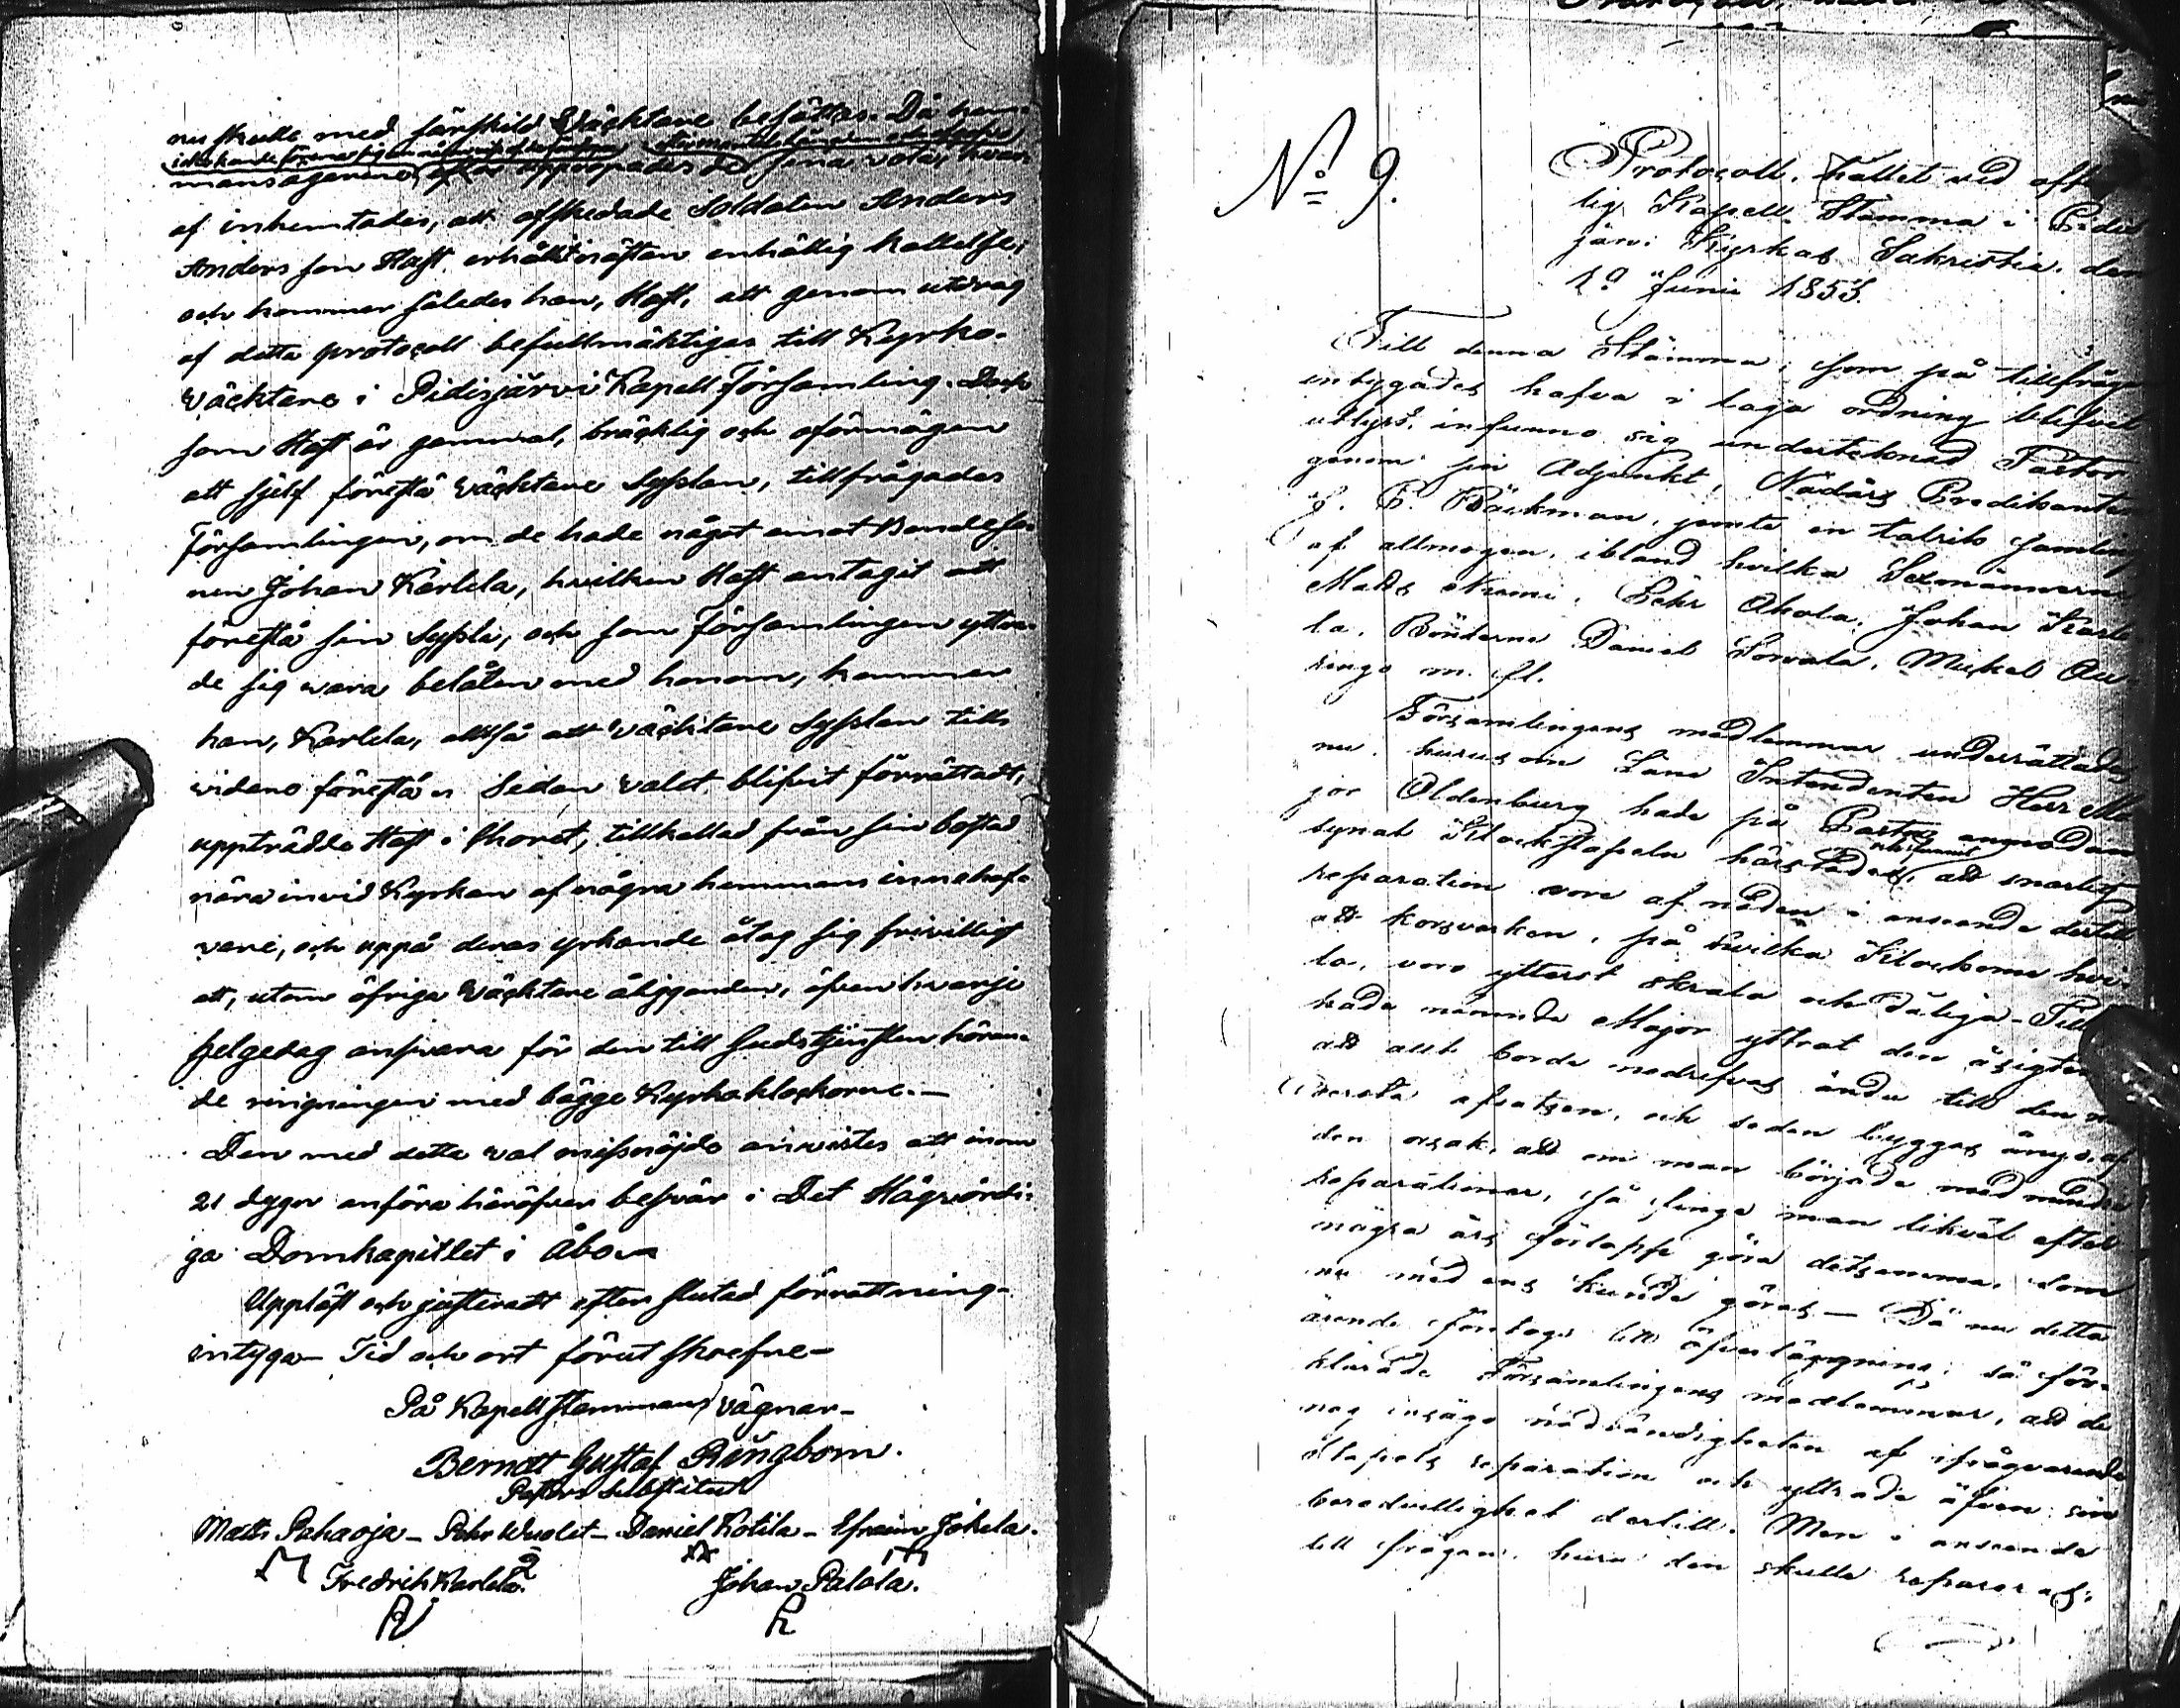 nu skulle med särskild Väcktare besättas. Då hem-
mansägarene uppropades sina voter, hvar-
af inhemtades, att afskedade Soldaten Anders
Anders son Haft erhållit nästan enhällig kallelse;
och kommer således han, Haft, att genom utdrag
af detta protocoll befullmäktigas till Kyrko-
väcktare i Pidisjärvi Kapell Församling. Dock
som Haft är gammal, bräcklig och oförmögen
att sjelf förestå väcktare Sysslan, tillfrågades
Församlingen, om de hade något emot Bondeso-
nen Johan Karlela, hvilken Haft antagit att
förestå sin Syssla, och som Församlingen yttra-
de sig vara belåten med honom, kommer
han, Karlela, alltså att väcktare Sysslan tills
vidare förestå. Sedan valet blifvit förrättadt,
uppträdde Haft i Choret, tillkallad från sin bostad
nära invid Kyrkan af några hemmans innehaf-
vare, och uppå deras yrkande åtog sig frivilligt
att, utom öfriga Väcktare åligganden, äfven hvarje
helgedag ansvara för den till Gudstjensten höran-
de ringningen med bägge Kyrkoklockorne.—
Den med detta val missnöjde anvistes att inom
21 dygn anföra häröfver besvär i Det Högvördi-
ga Domkapitlet i Åbo.—
Uppläst och justeradt efter slutad förrättning-
intyga— Tid och ort förut skrefne—
På Kapellstämmans vägnar—
Berndt Gustaf Ringbom.
Pastors Substitut
Matts Pahaoja — Pehr Wuolet — Daniel Kotila — Efraim Jokela.
Fredrik Karlela. Johan Palola.
No 9.
Protocoll, hållet vid
lig Kapell Stämma i Pidis
järvi Kyrkas Sakristia den
19 Junii 1853.
Till denna Stämma, som på tillfråga
intygades hafva i laga ordning blifvit
utlyst, infunno sig undertecknad Pastor
genom sin Adjunkt, Nådårs Predikanten
J. B. Bäckman, jemte en talrik samling
af allmogen, ibland hvilka Sexmännerne
Matts Nurmi, Pehr Ahola, Johan Karle
la, Bönderne Daniel Sorvala, Mickel
m. fl.
Församlingens medlemmar underrättades
nu, huruson Läns Intendenten Herr Ma
jor Oldenburg hade på Pastors anmodan
synat Klockstapeln härstädes, att snarlig
reparation vore af nöden i anseende dertill
att korsvarken, på hvilka Klockorne hvi-
la, voro ytterst skrala och dåliga — Till
hade nämnde Major yttrat den åsigten
att allt borde nedrefvas ända till den
versta afsatsen, och sedan byggas ånyo, af
den orsak, att om man började med mindre
reparationer, så finge man likväl efter
några års förlopp göra detsamma, som
nu med ens kunde göras — Då nu detta
ärende företogs till öfverläggning, så för-
klarade Församlingens medlemmar, att de
nog insågo nödvändigheten af ifrågvarande
Stapels reparation och yttrade äfven sin
beredvillighet dertill. Men i anseende
till frågan, huru den skulle repareras,